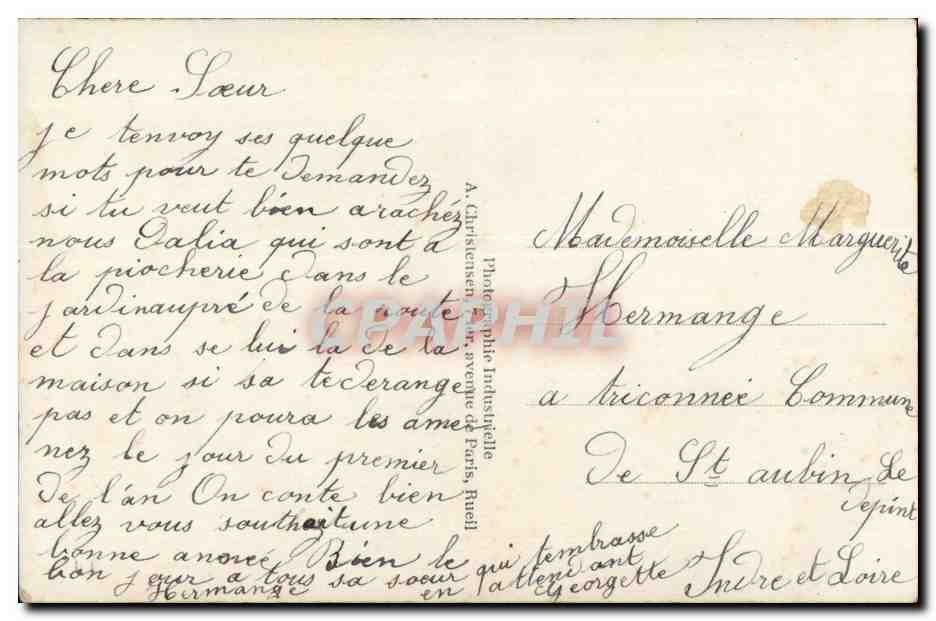 Chere Sœur
je tenvoy ses quelque
mots pour te demandez
si tu veut bien arachéz
nous Dalia qui sont a
la piocherie dans le
jardinaupré de la route
et dans se lui la de la
maison si sa tederange
pas et on poura les ame
nez le jour du premier
de l'an On conte bien
allez vous southait une
bonne année Bien le
bon jour a tous sa sœur qui tembrasse
Hermange en attendant
Georgette
Photographie Industrielle
A. Christensen, avenue de Paris, Rueil
Mademoiselle Marguerite
Hermange
a triconnée Commune
de St aubin Le
depint
Indre et Loire
CPAPHIL